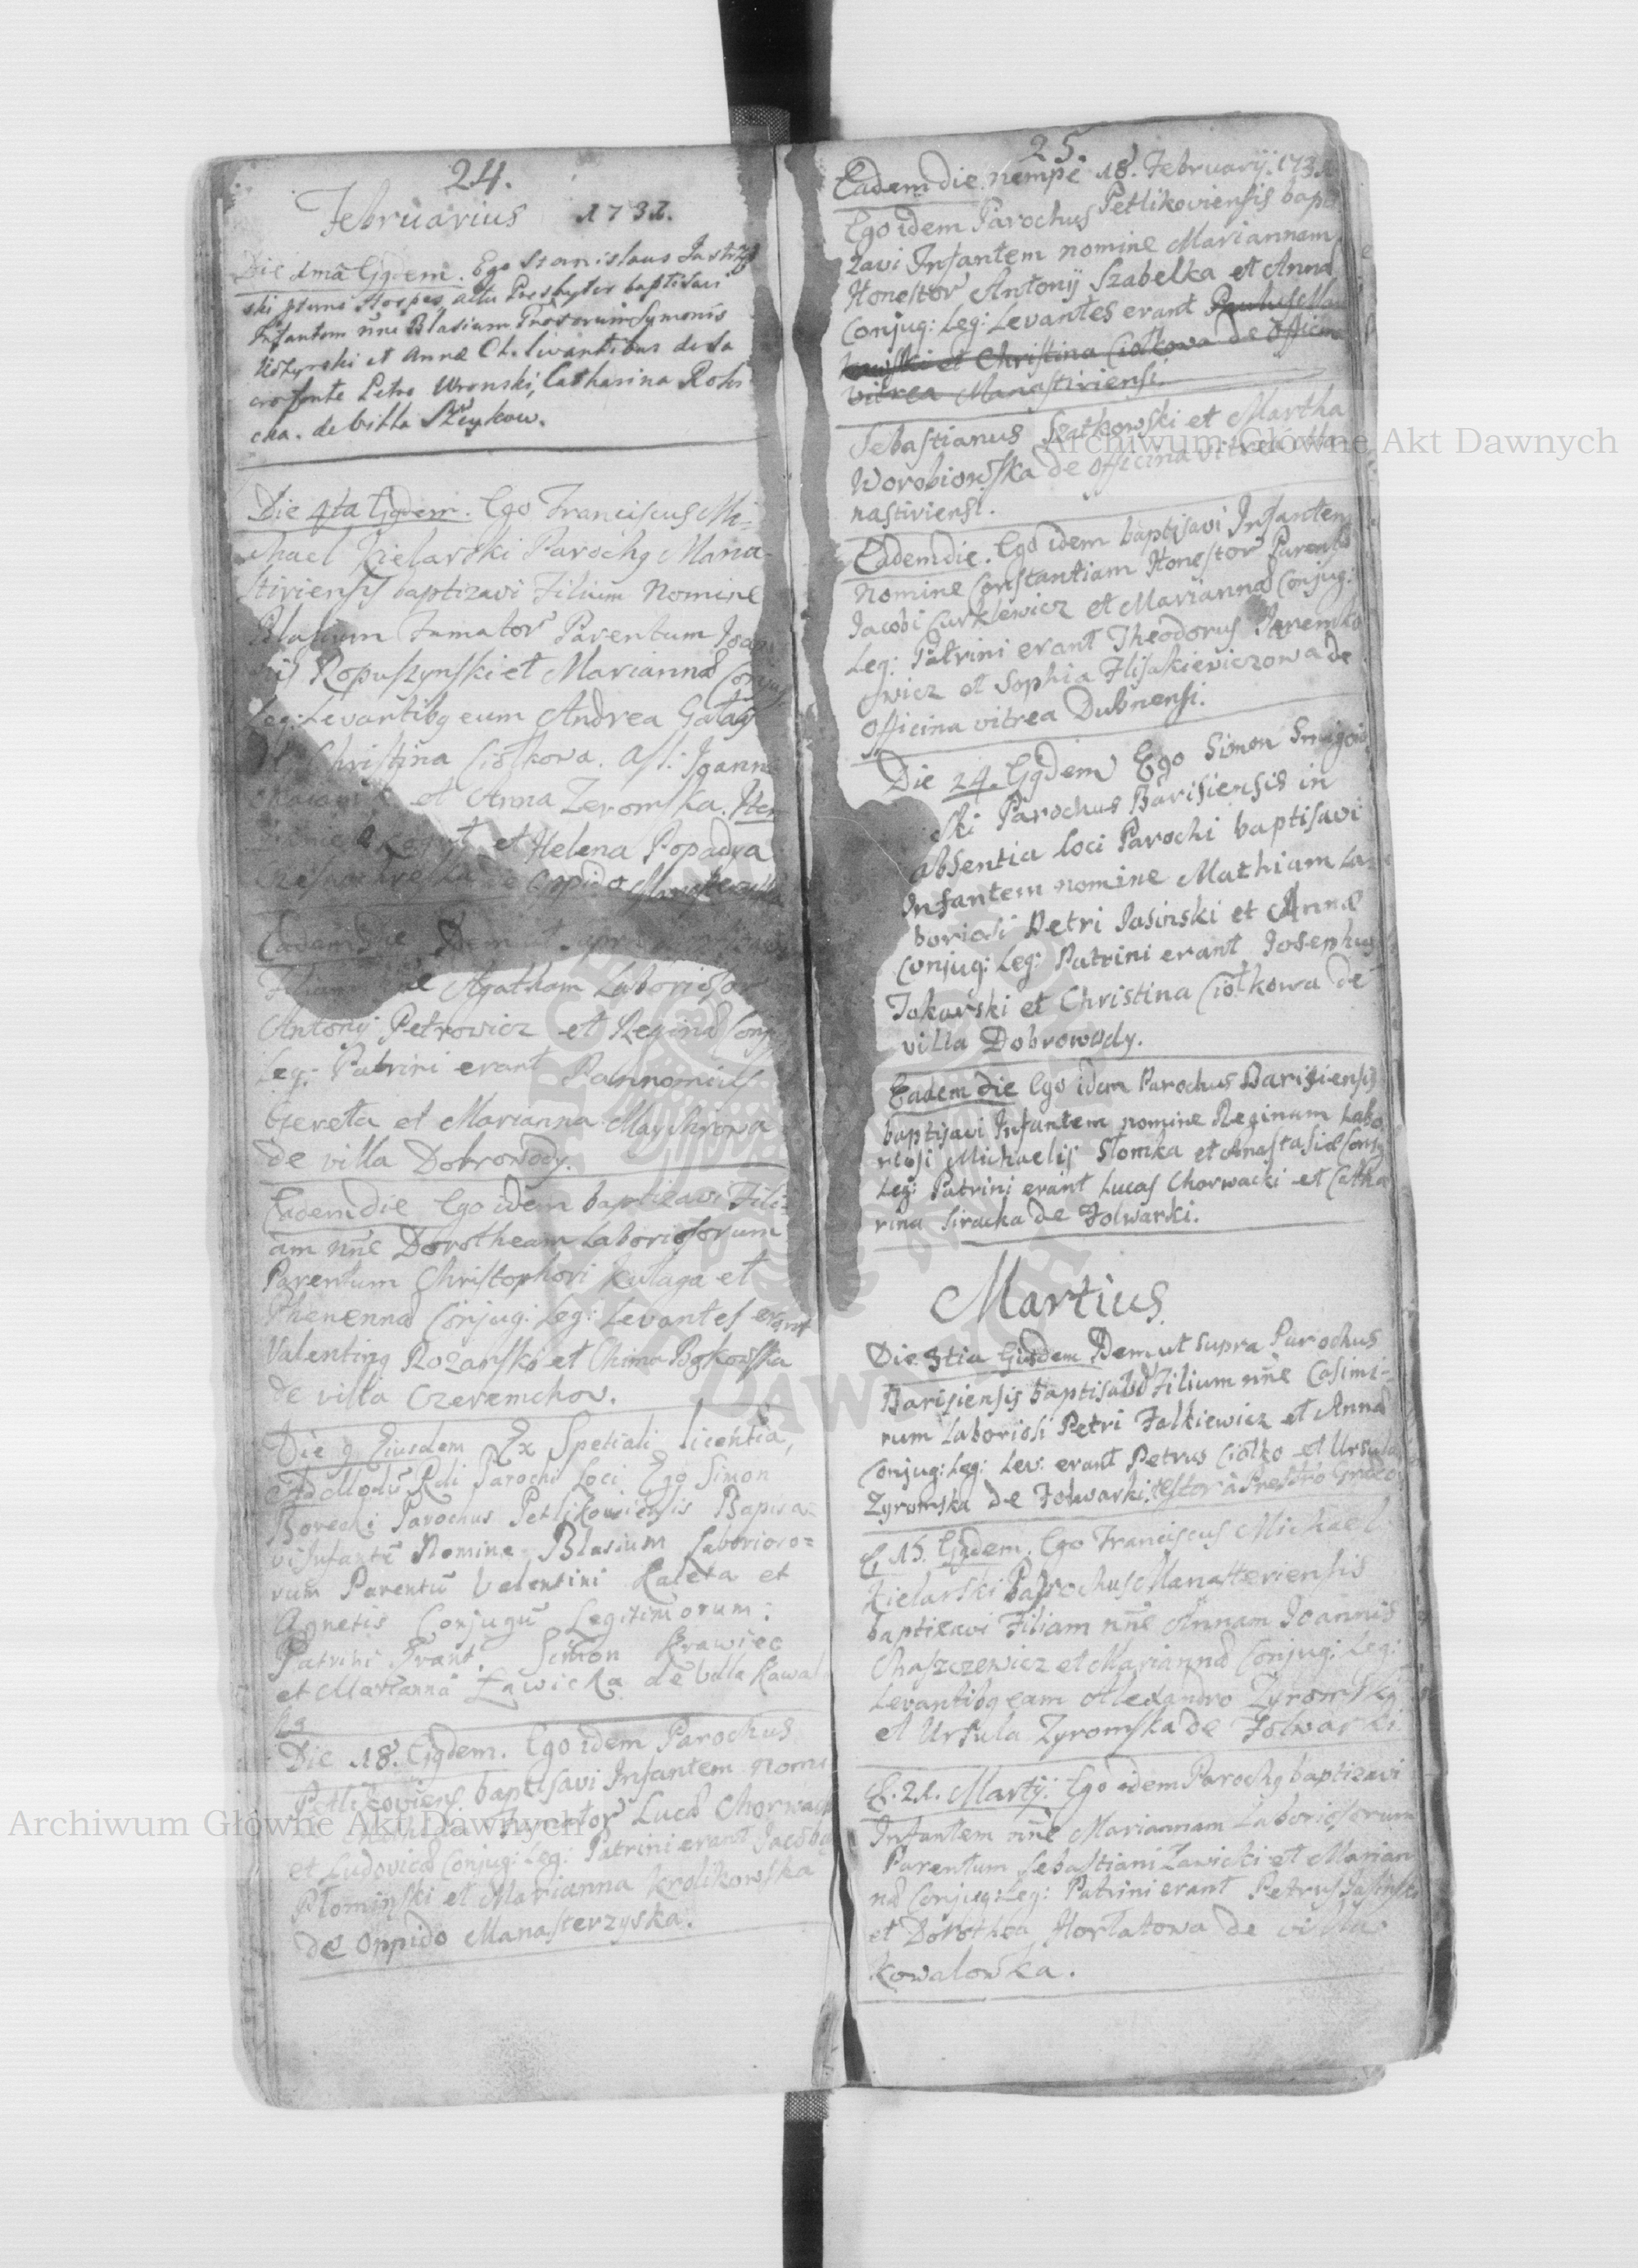 24.
Februarius 1731.
Die 1mã Ejgdem. Ego Stanislaus
ski Hospes, actu Presbyter baptisavi
Infantem nñe Blasium Symonis
et Annæ C.L. levantibus de Sa
cro fonte Petro Wronski, Catharina
cka. de Villa
Die 4ta Ejgdem. Ego Franciscus Mi=
chael Kielarski Parochg Mona-
stiriensis baptizavi Filium Nomine
Blasium Famator Parentum Joan
nis Ropuszynski et Mariannæ Conjug
Leg: Levantibg eum Andrea
et Christina Ciołkowa. Ass: Joann
et Anna Zeromska. Item
et Helena Popadya
de Oppido
Eadem Die Idem ut
Filiam Agatham Laboriosor
Antonij Petrowicz et Reginæ Conj
Leg: Patrini erant
Gereta et Marianna
de villa Dobrowody.
Eadem die Ego idem baptizavi Fili-
am nñe Dorotheam Laboriosorum
Parentum Christophori Kulaga et
Conjug: Leg: Levantes erant
Valenting Rozanski et
de villa Czeremchow.
Die 9 Eiusdem Ex Spetiali licentia,
AdModũ Rdi Parochi Loci Ego Simon
Borecki Parochus Petlikowiensis Bapisa-
vi Infantẽ Nomine Blasium Laborioro=
rum Parentũ Valentini Kaleta et
Agnetis Conjugũ Legitimorum:
Patrini Erant. Simon Krawiec
et Marianna Ławicka de Villa Kawal
ka
Die 18. Ejgdem. Ego idem Parochus
Petlikoviens baptisavi Infantem nomi
Famator Lucæ Chorwacki
et Ludovicæ Conjug: Leg: Patrini erant Jacobg
Płominski et Marianna Krolikowska
de Oppido Manasterzyska.
25.
Eadem die nempe 18. Februarij. 1731
Ego idem Parochus Petlikoviensis bapti
zavi Infantem nomine Mariannam
Honestor Antonij Szabelka et Annæ
Conjug: Leg: Levantes erant
et Christina Ciołkowa de Officina
vitrea Manastiriensi.
Sebastianus Szatkowski et Martha
Worobiowska de Officina vitrea Ma
nastiriensi.
Eadem die. Ego idem baptisavi Infantem
nomine Constantiam Honestor Parentũ
Jacobi Curkiewicz et Mariannæ Conjug:
Leg: Patrini erant Theodorus Jaremko
wicz et Sophia Flisakiewiczowa de
Officina vitrea Dubnensi.
Die 24. Ejgdem Ego Simon
ski Parochus Barisiensis in
absentia loci Parochi baptisavi
Infantem nomine Mathiam La-
boriosi Petri Jasinski et Annæ
Conjug: Leg: Patrini erant Josephus
Tokarski et Christina Ciołkowa de
villa Dobrowody.
Eadem die Ego idem Parochus Barisiensis
baptisavi Infantem nomine Reginam Labo
riosi Michaelis Słomka et Anastasiæ Conjg
Leg: Patrini erant Lucas Chorwacki et Catha
rina Siracka de Folwarki.
Martius.
Die 3tia Ejusdem Idem ut supra Parochus
Barisiensis baptisavit Filium nñe Casimi-
rum Laboriosi Petri Falkiewicz et Annæ
Conjug: Leg: Lev: erant Petrus Ciołko et Ursula
Zyromska de Folwarki.
D 15. Ejgdem. Ego Franciscus Michael
Kielarski Parochus Manasteriensis
baptizavi Filiam nñe Annam Joannis
Chaszczewicz et Mariannæ Conjug: Leg:
Levantibg eam Alexandro Zyromski
et Ursula Zyromska de Folwarki
D. 21. Martij: Ego idem Parochg baptizavi
Infantem nñe Mariannam Laboriosorum
Parentum Sebastiani Zawicki et Marian
næ Conjug: Leg: Patrini erant Petrus Jasinski
et Dorothea Hortatowa de villa
Kowalowka.
Archiwum Główne Akt Dawnych
Archiwum Główne Akt Dawnych